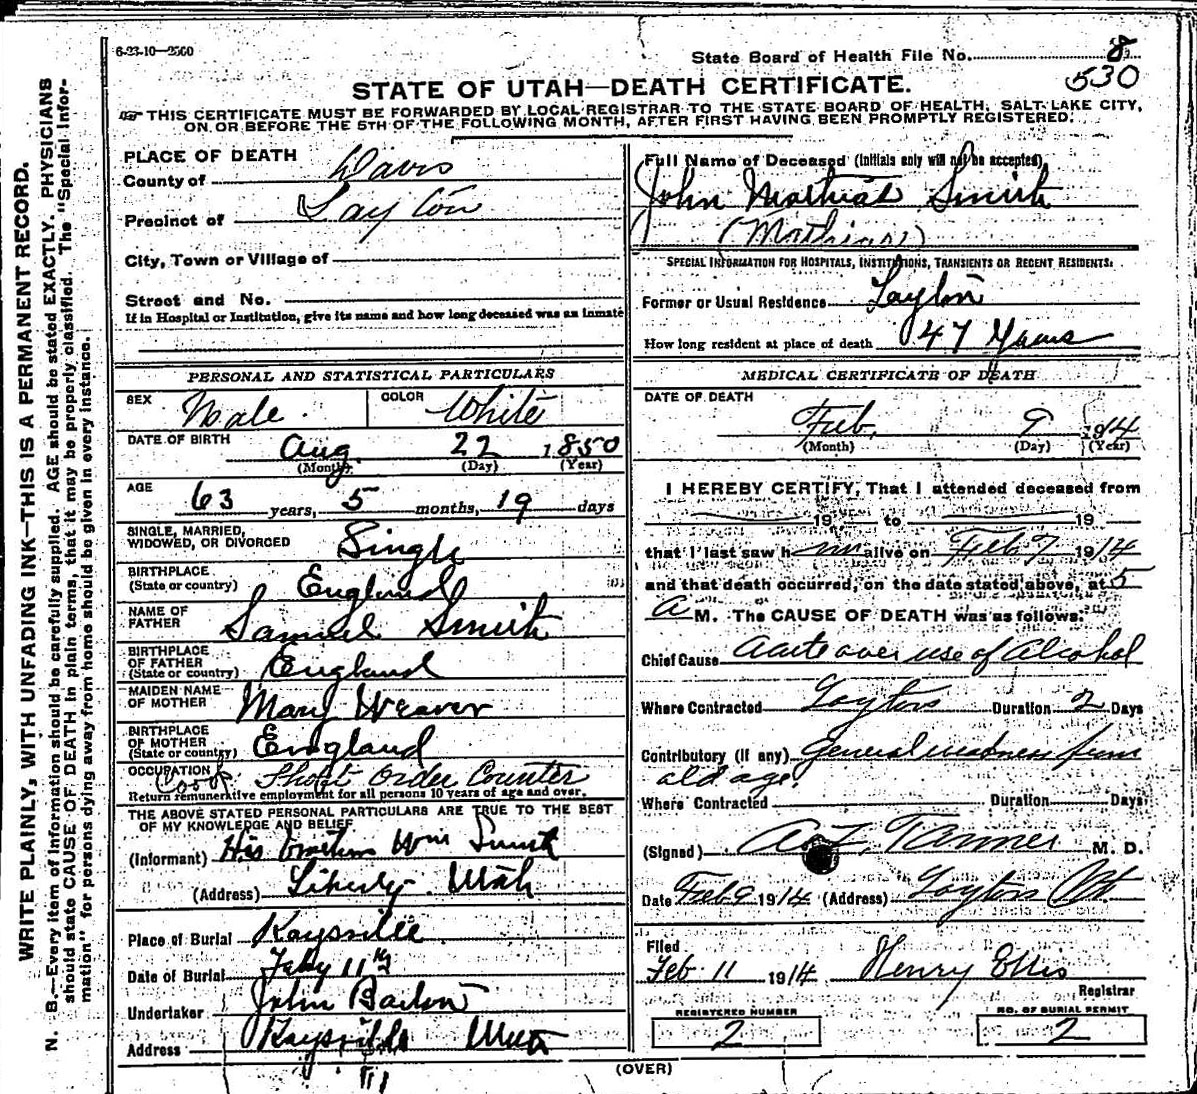 6-23-10—2560
State Board of Health File No. 8
530
STATE OF UTAH—DEATH CERTIFICATE.
THIS CERTIFICATE MUST BE FORWARDED BY LOCAL REGISTRAR TO THE STATE BOARD OF HEALTH, SALT LAKE CITY,
ON OR BEFORE THE 5TH OF THE FOLLOWING MONTH, AFTER FIRST HAVING BEEN PROMPTLY REGISTERED.
WRITE PLAINLY, WITH UNFADING INK—THIS IS A PERMANENT RECORD.
N. B.—Every item of information should be carefully supplied. AGE should be stated EXACTLY. PHYSICIANS
should state CAUSE OF DEATH in plain terms, that it may be properly classified. The "Special Infor-
mation" for persons dying away from home should be given in every instance.
PLACE OF DEATH
County of Davis
Precinct of Layton
City, Town or Village of
Street and No.
If in Hospital or Institution, give its name and how long deceased was an inmate
PERSONAL AND STATISTICAL PARTICULARS
SEX Male COLOR White
DATE OF BIRTH Aug. 22 1850
(Month) (Day) (Year)
AGE 63 years, 5 months, 19 days
SINGLE, MARRIED,
WIDOWED, OR DIVORCED Single
BIRTHPLACE
(State or country) England
NAME OF
FATHER Samuel Smith
BIRTHPLACE
OF FATHER
(State or country) England
MAIDEN NAME
OF MOTHER Mary Weaver
BIRTHPLACE
OF MOTHER
(State or country) England
OCCUPATION Cook Short Order Counter
Return remunerative employment for all persons 10 years of age and over.
THE ABOVE STATED PERSONAL PARTICULARS ARE TRUE TO THE BEST
OF MY KNOWLEDGE AND BELIEF
(Informant) His brother Wm Smith
(Address) Liberty Utah
Place of Burial Kaysville
Date of Burial Feby 11th
Undertaker John Barton
Address Kaysville Utah
Full Name of Deceased (Initials only will not be accepted)
John Mathias Smith
(Mathias)
SPECIAL INFORMATION FOR HOSPITALS, INSTITUTIONS, TRANSIENTS OR RECENT RESIDENTS.
Former or Usual Residence Layton
How long resident at place of death 47 Years
MEDICAL CERTIFICATE OF DEATH
DATE OF DEATH
Feb. 9 1914
(Month) (Day) (Year)
I HEREBY CERTIFY, That I attended deceased from
19 to 19
that I last saw h im alive on Feb 7 1914
and that death occurred, on the date stated above, at 5
A M. The CAUSE OF DEATH was as follows:
Chief Cause Acute over use of Alcohol
Where Contracted Layton Duration 2 Days
Contributory (if any) General weakness from
old age.
Where Contracted Duration Days
(Signed) A. Z. Tanner M. D.
Date Feb 9 1914 (Address) Layton Ut.
Filed
Feb. 11 1914 Henry Ellis
Registrar
REGISTERED NUMBER
2
NO. OF BURIAL PERMIT
2
(OVER)